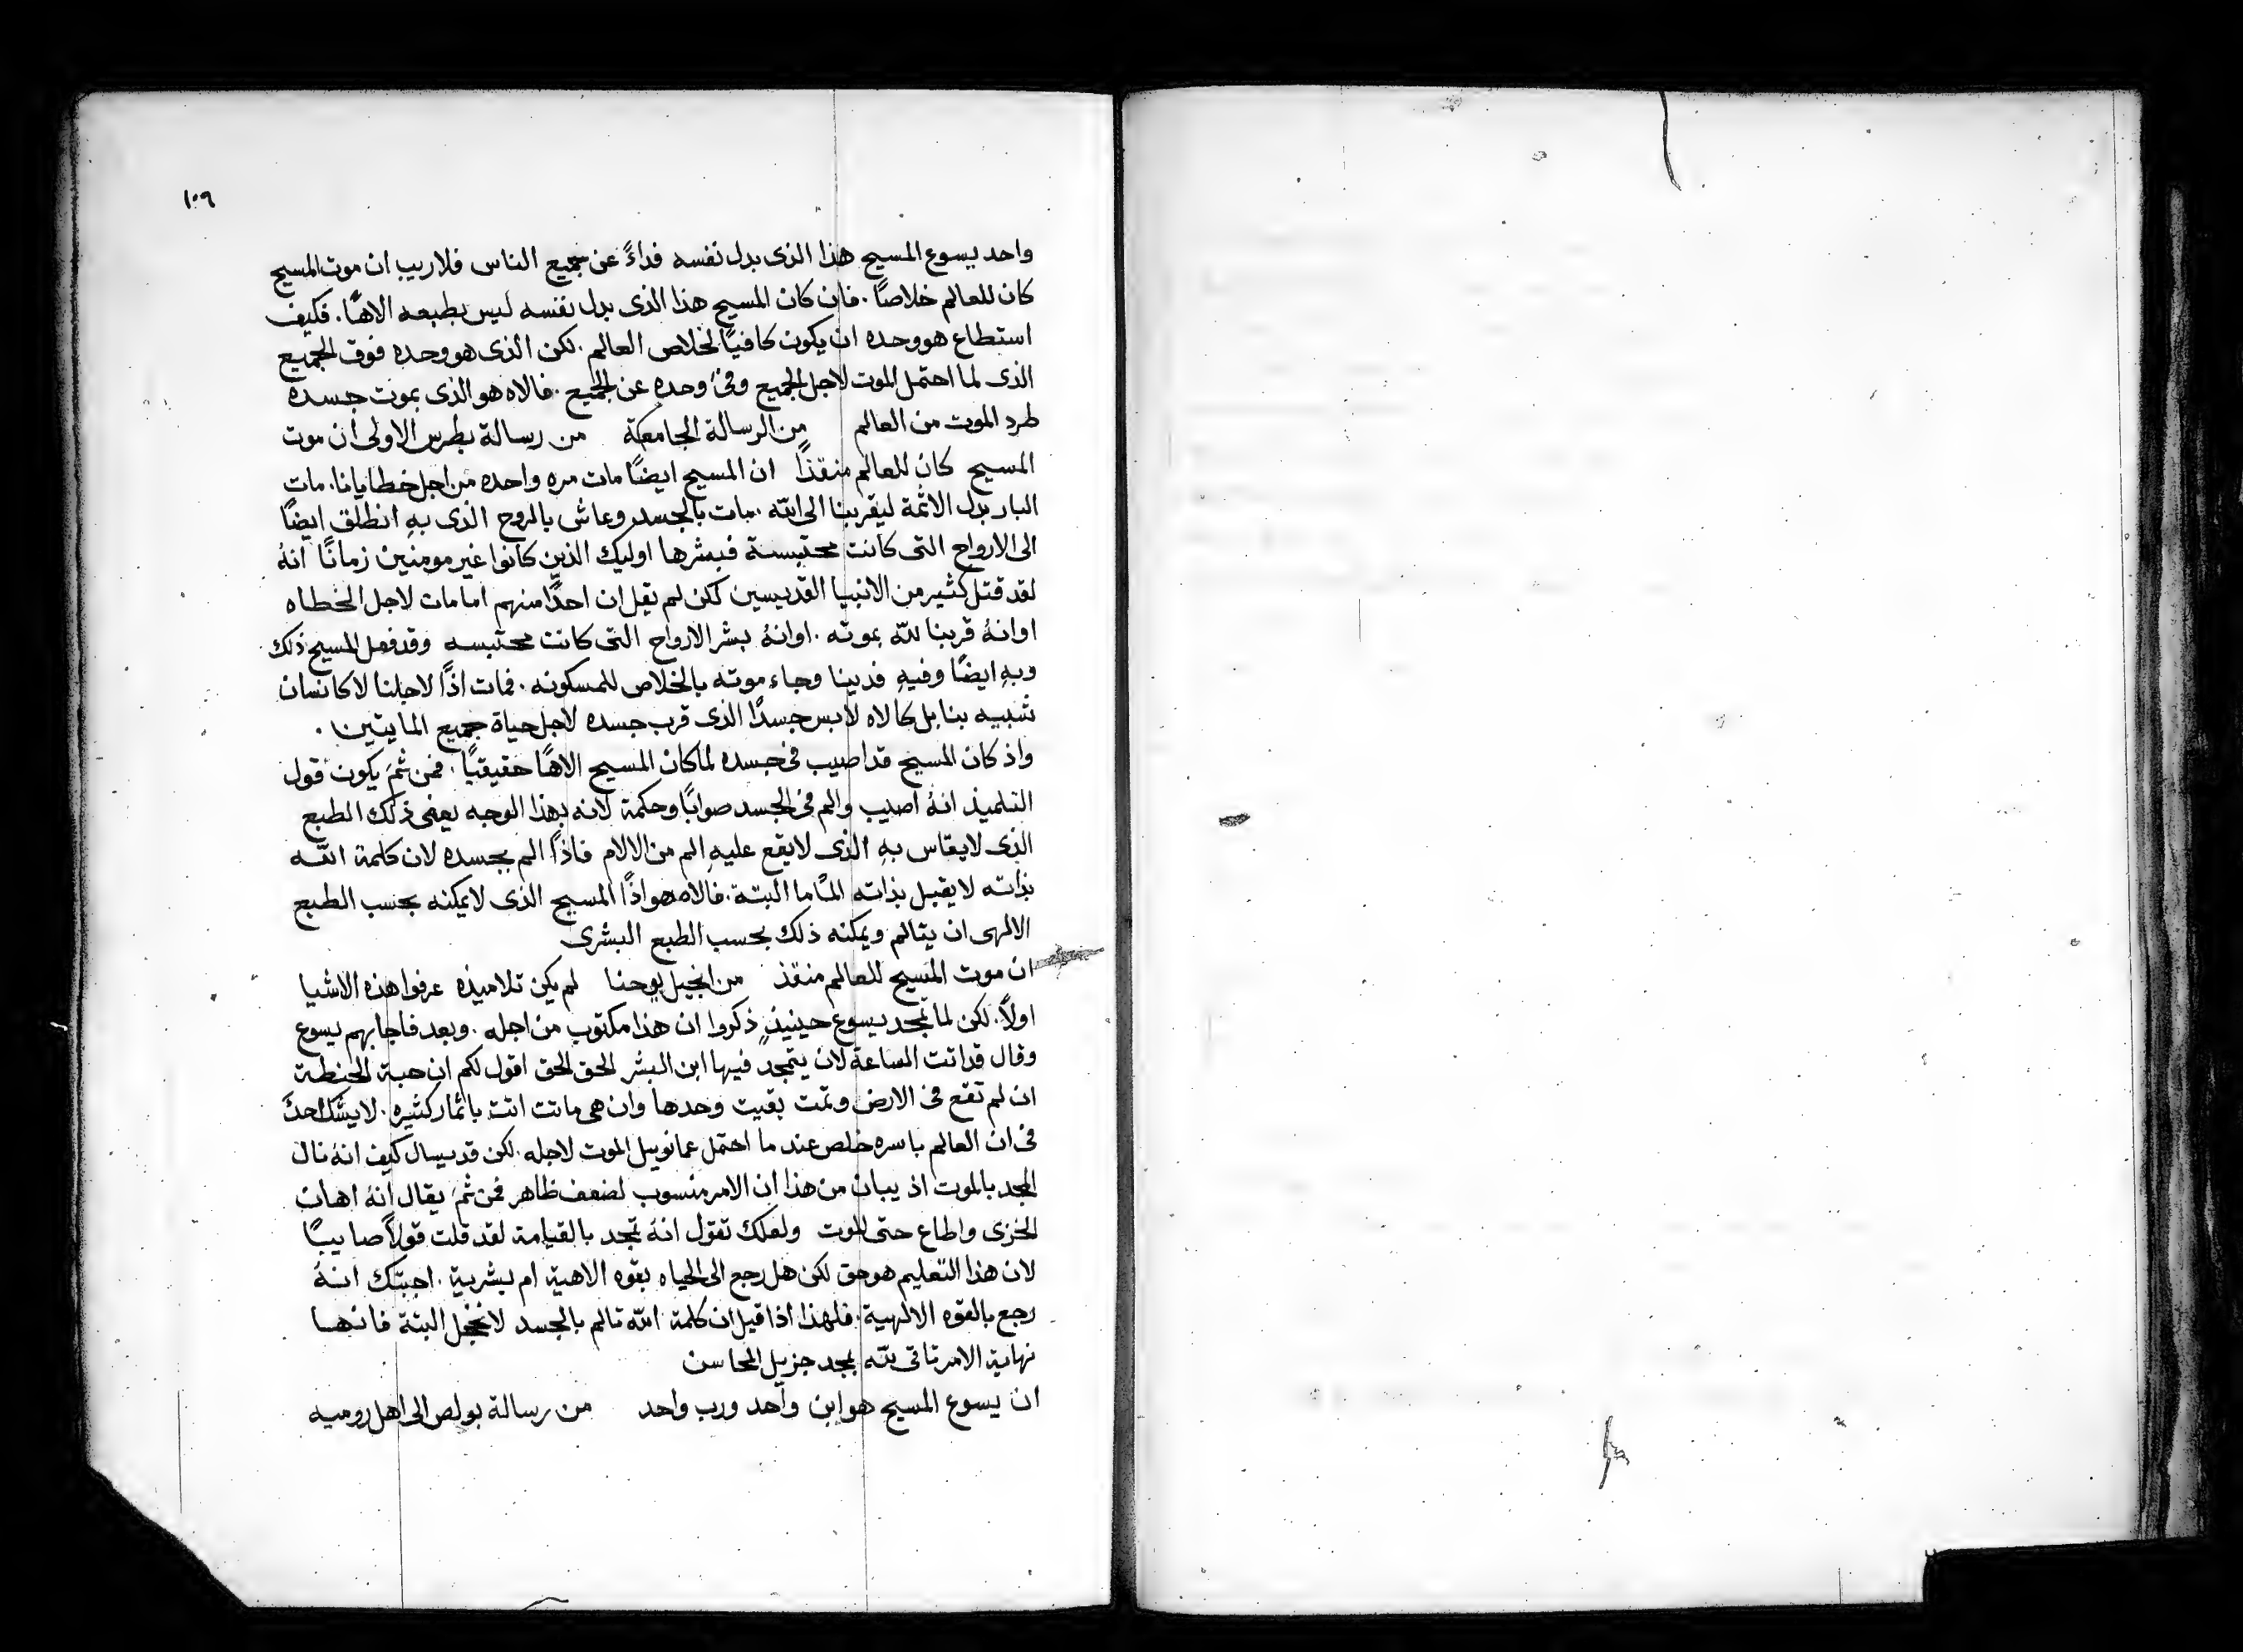 ١٠٩
واحد يسوع المسيح هذا الذى بدل نفسه فداءً عن جميع الناس فلاريب ان موت المسيح
كان للعالم خلاصًا . فان كان المسيح هذا الذى بدل نفسه ليس بطبعه الاهًا . فكيف
استطاع هو وحده ان يكون كافيًا لخلاص العالم . لكن الذى هو وحده فوق الجميع
الذى لما احتمل الموت لاجل الجميع وفىٰ وحده عن الجميع . فالاه هو الذى بموت جسده
طرد الموت من العالم من الرسالة الجامعة من رسالة بطرس الاولى ان موت
المسيح كان للعالم منقذًا ان المسيح ايضًا مات مره واحده من اجل خطايانا . مات
البار بدل الاثمة ليقربنا الى الله . مات بالجسد وعاش بالروح الذى بهِ انطلق ايضًا
الى الارواح التى كانت محتبسة فبشرها اوليك الذين كانوا غير مومنين زمانًا انهُ
لقد قتل كثير من الانبيا القديسين لكن لم يقل ان احدًا منهم اما مات لاجل الخطاه
اوانهُ قربنا لله بموته . اوانهُ بشر الارواح التى كانت محتبسه وقد فعل المسيح ذلك
وبهِ ايضًا وفيهِ فدينا وجاء موته بالخلاص للمسكونه . فمات اذًا لاجلنا لا كانسان
شبيه بنا بل كالاه لابس جسدًا الذى قرب جسده لاجل حياة جميع المايتين .
واذ كان المسيح قد اصيب فى جسده لما كان المسيح الاهًا حقيقيًا . فمن ثمَ يكون قول
التلميذ انهُ اصيب والم فى الجسد صوابًا وحكمة لانه بهذا الوجه يعفى ذلك الطبع
الذى لايقاس بهِ الذى لايقع عليهِ الم من الالام فاذًا الم بجسده لان كلمة الله
بذاته لا يقبل بذاته المًا ما البتة . فالاه هو اذًا المسيح الذى لايمكنه بحسب الطبع
الالهى ان يتالم ويمكنه ذلك بحسب الطبع البشرى
ان موت المسيح للعالم منقذ من انجيل يوحنا لم يكن تلاميذه عرفوا هذه الاشيا
اولاً . لكن لما تمجد يسوع حينيذٍ ذكروا ان هذا مكتوب من اجله . وبعد فاجابهم يسوع
وقال قد اتت الساعة لان يتمجد فيها ابن البشر الحق الحق اقول لكم ان حبة الحنطة
ان لم تقع فى الارض وتمت بقيت وحدها وان هى ماتت اتت باثمار كثيره . لايشك احدٌ
فى ان العالم باسره خلص عند ما احتمل عمانوييل الموت لاجله . لكن قد يسال كيف انهُ نال
المجد بالموت اذ يبان من هذا ان الامر منسوب لضعف ظاهر فمن ثمَ يقال انهُ اهان
الخزى واطاع حتى الموت ولعلك تقول انهُ تمجد بالقيامة لقد قلت قولاً صايبًا
لان هذا التعليم هو حق لكن هل رجع الى الحياه بقوه الاهية ام بشرية . اجبتك انهُ
رجع بالقوه الالهية . فلهذا اذا قيل ان كلمة الله تالم بالجسد لا نخجل البتة فانها
نهاية الامر تاتى لله بمجد جزيل المحاسن
ان يسوع المسيح هو ابن واحد ورب واحد من رسالة بولص الى اهل روميه